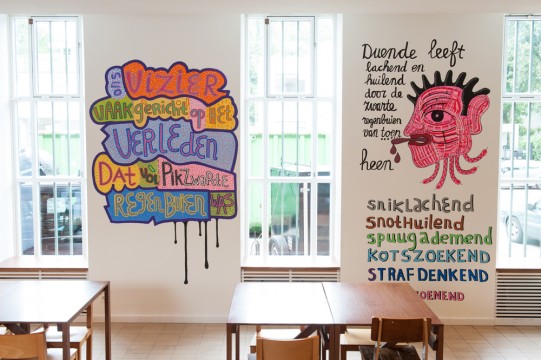 ons
VIZIER
VAAK gericht op HET
VERLEDEN
DAT vol PikZwarte
REGENBUIEN WAS
Duende leeft
lachend en
huilend
door de
zwarte
regenbuien
van toen
heen
sniklachend
SNOTHUILEND
SPUUGADEMEND
KOTSZOEKEND
STRAFDENKEND
ZOEMEND